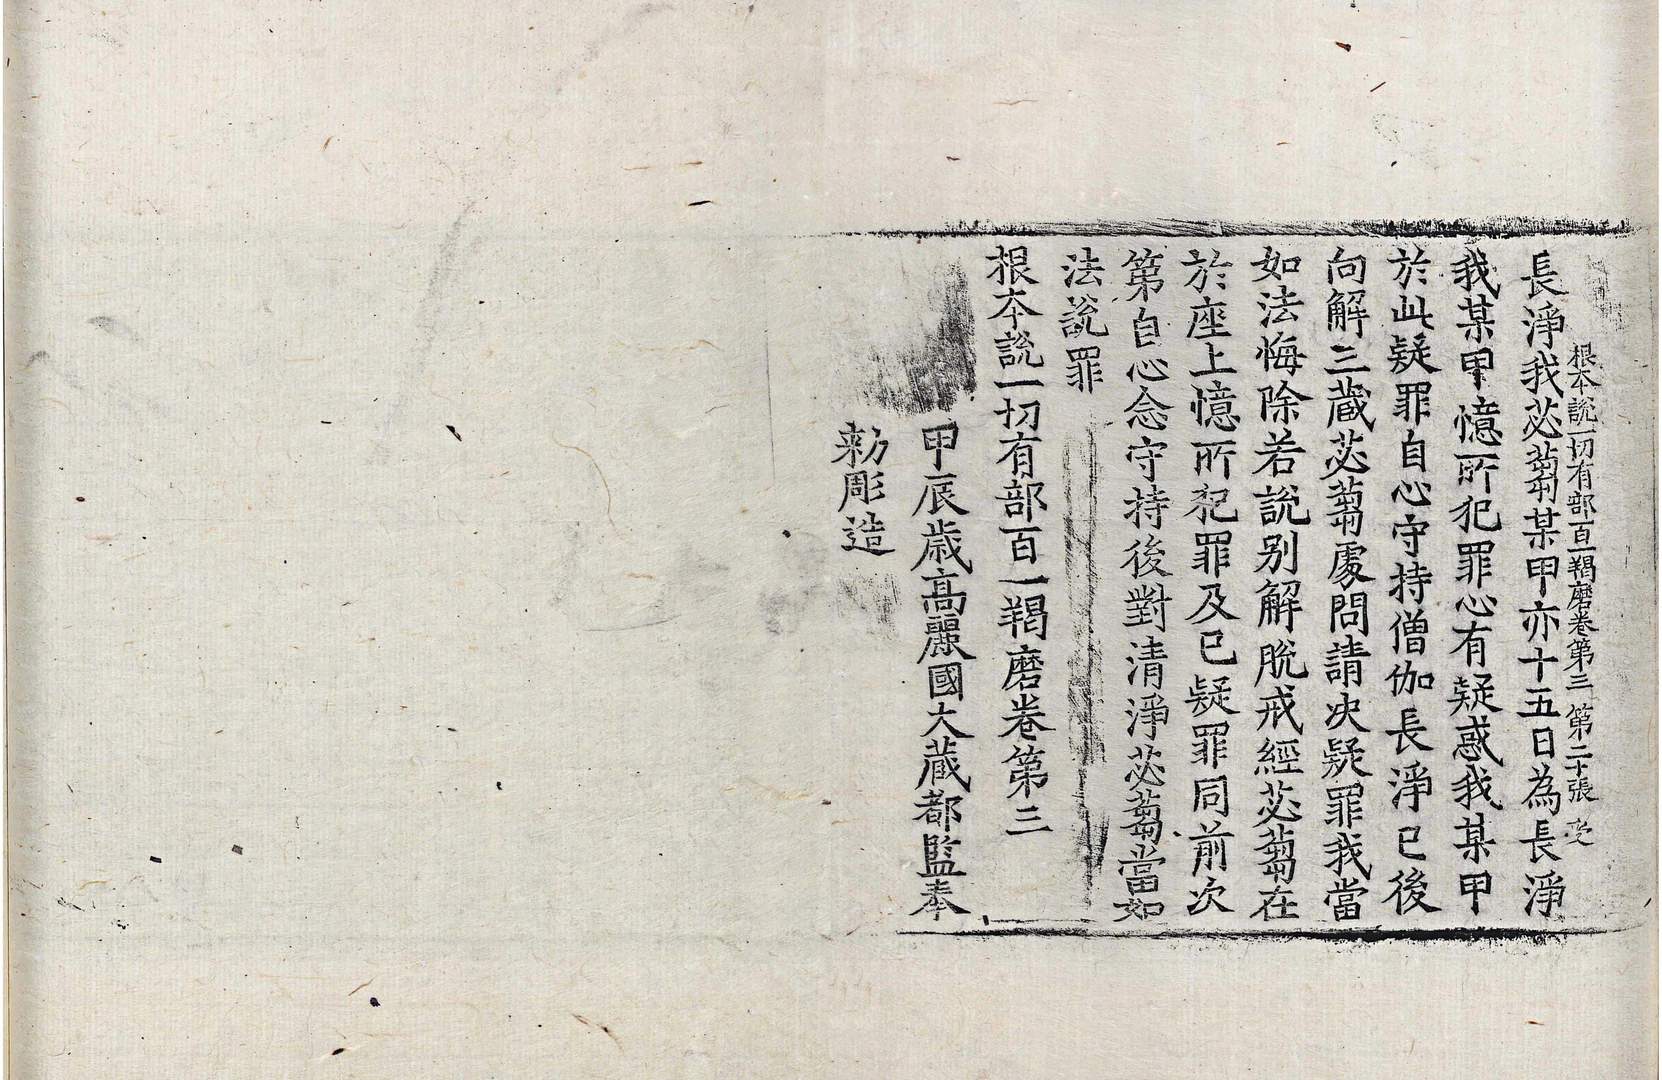 根本說一切有部百一羯磨卷第三 第二十張 受
長淨我苾蒭某甲亦十五日為長淨
我某甲憶所犯罪心有疑惑我某甲
於此疑罪自心守持僧伽長淨已後
向解三藏苾蒭處問請决疑罪我當
如法悔除若說别解脫戒經苾蒭在
於座上憶所犯罪及已疑罪同前次
第自心念守持後對清淨苾蒭當如
法說罪
根本說一切有部百一羯磨卷第三
甲辰歲高麗國大藏都監奉
勑彫造